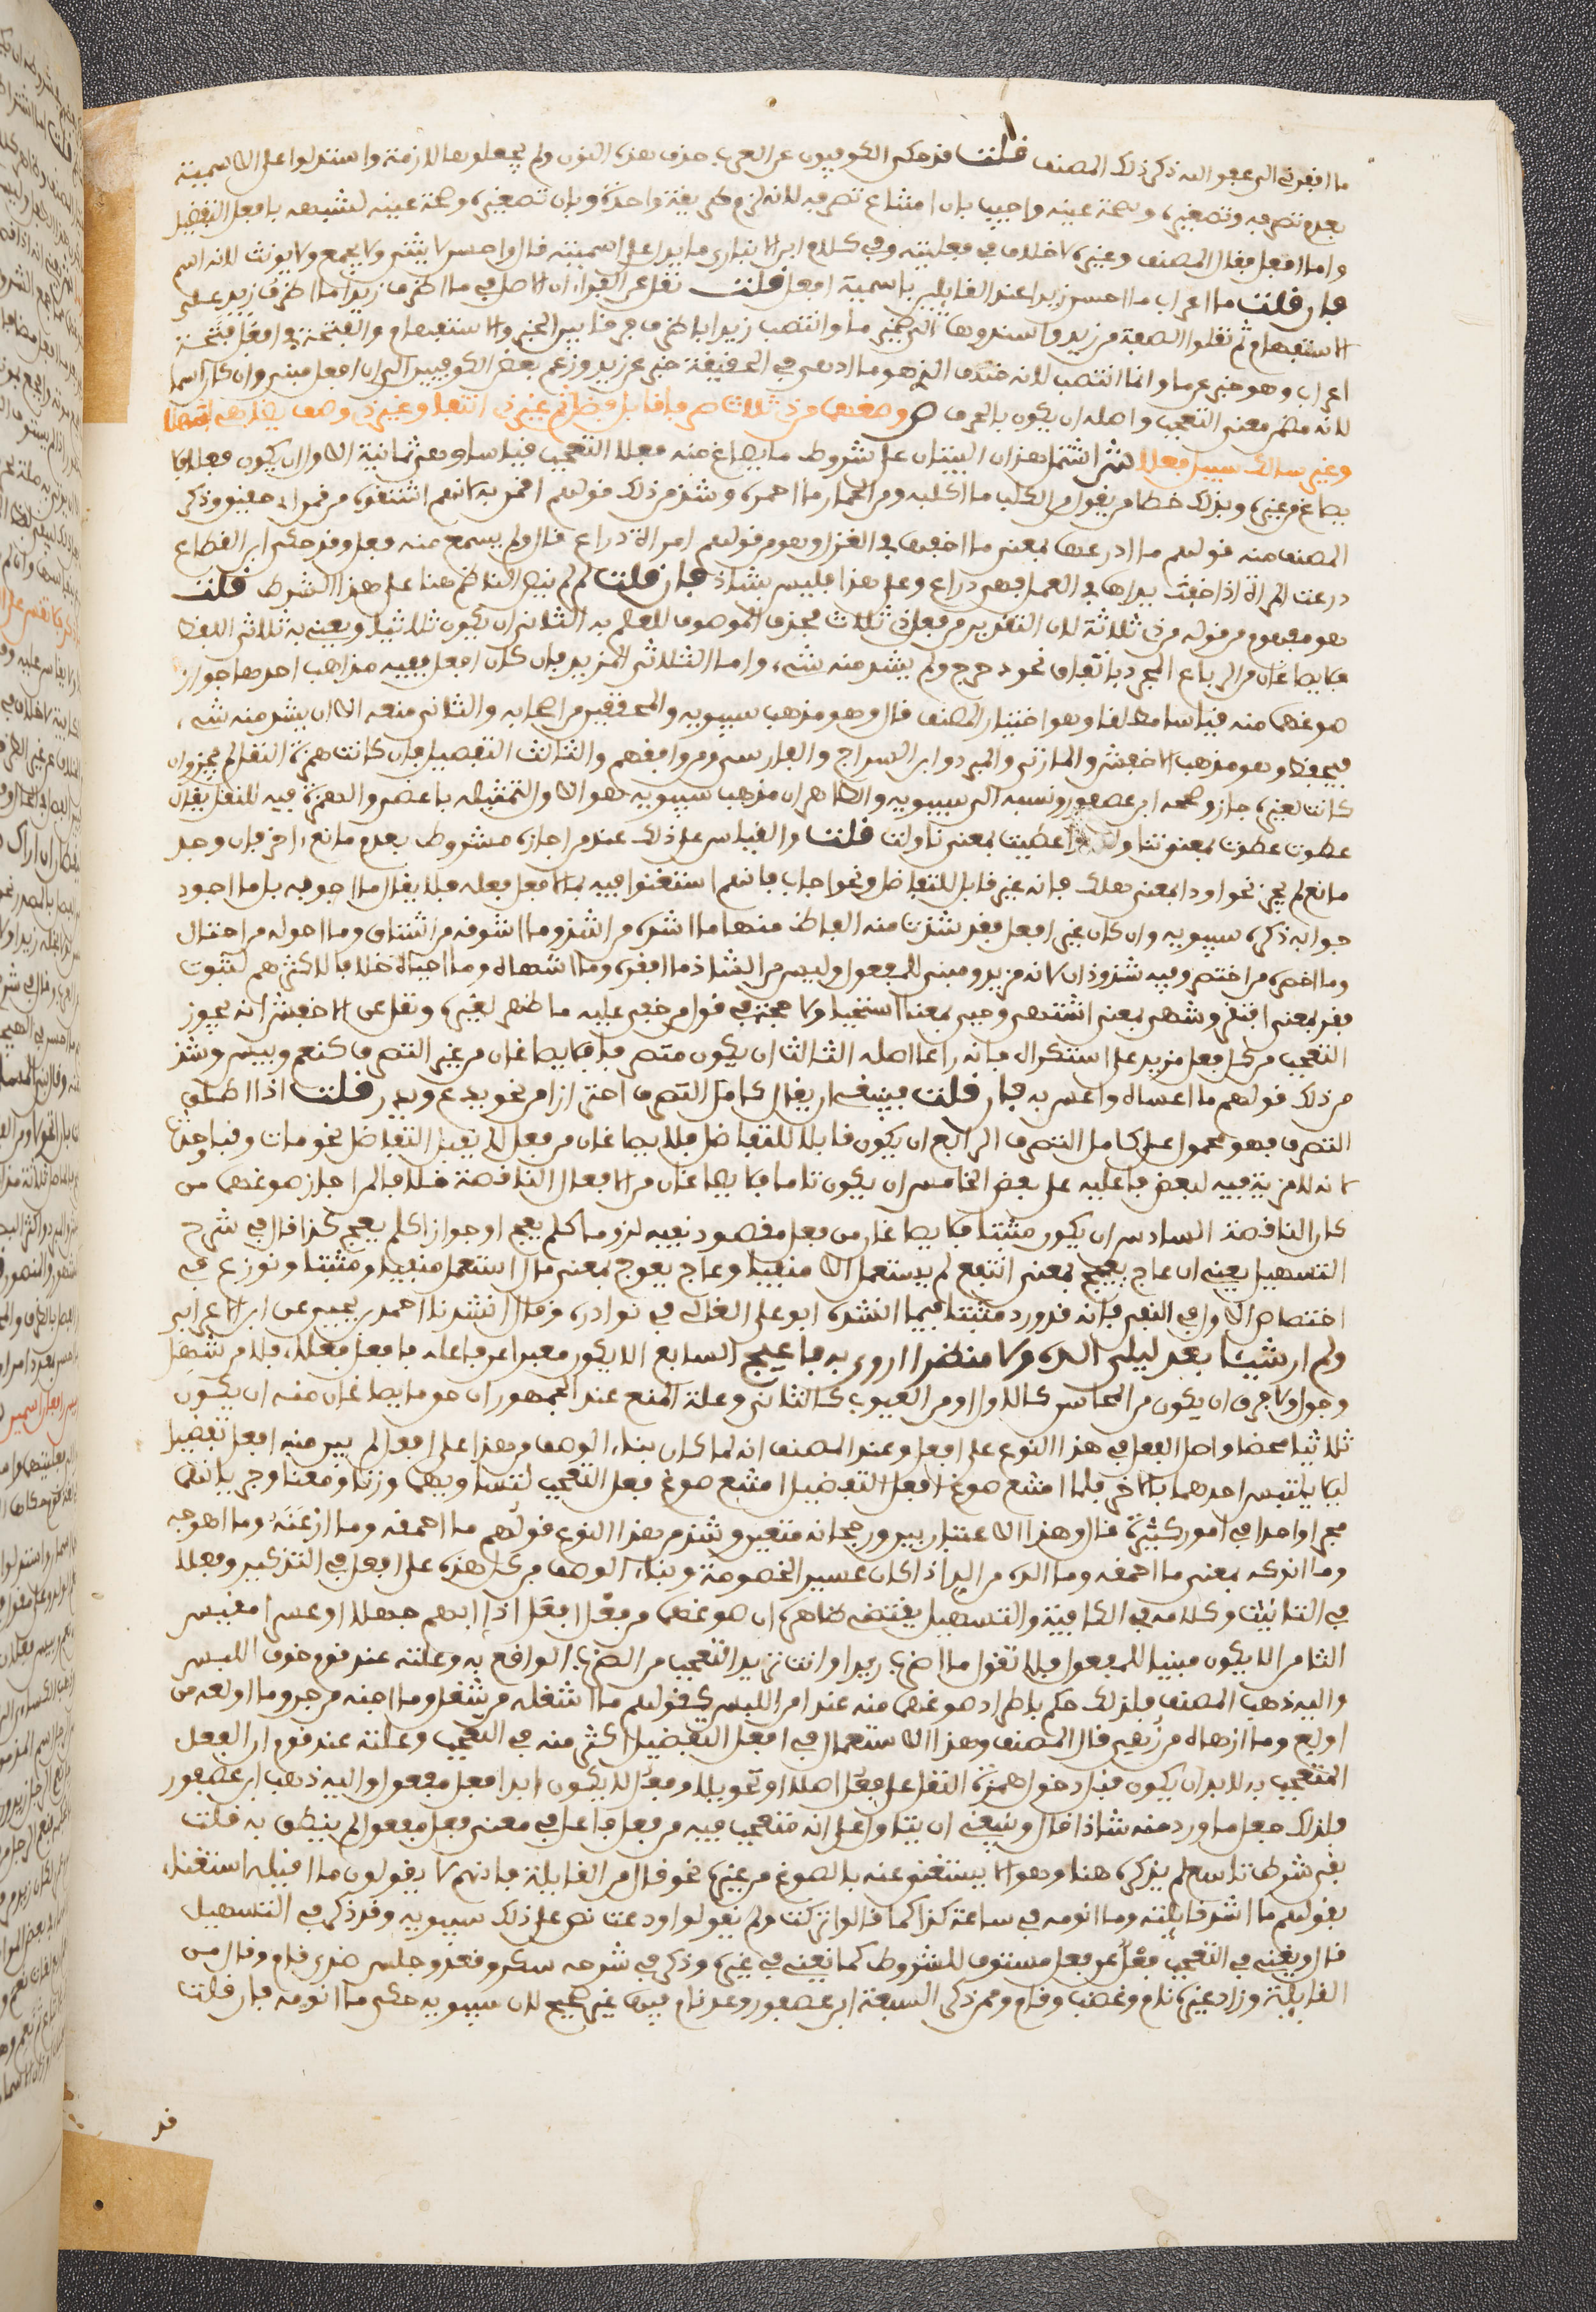 ما افقرني الى عفو الله ذكر ذلك المصنف قلت قد حكى الكوفيون عن العرب حذف هذه النون ولم يجعلوها لازمة واستدلوا على الاسمية
بعدم تصرفه وتصغيره وصحة عينه واجيب بان امتناع تصرفه لانه لزم طريقة واحدة وبان تصغيره وصحة عينه لشبهه بافعل التفضيل
واما افعل فقال المصنف وغيره لا خلاف في فعليته وفي كلام ابن الانباري ما يدل على اسميته قال واحسن لا يثنى ولا يجمع ولا يونث لانه اسم
فان قلت ما اعراب ما احسن زيدا عند القايلين باسمية افعل قلت نقل عن الفراء ان الاصل في ما اظرف زيدا ما اظرف زيد على
الاستفهام ثم نقلوا الصفة من زيد واسندوها الى ضمير ما وانتصب زيدا باظرف فرقا بين الخبر والاستفهام والفتحة في افعل فتحة
اعراب وهو خبر عن ما وانما انتصب لانه خلاف الخ هو ما اذ هي في الحقيقة خبر عن زيد وزعم بعض الكوفيين الى ان افعل مبني وان كان اسما
لانه مضمن معنى التعجب واصله ان يكون بالحرف ص وصغهما من ذي ثلاث صرفا قابل فضل تم غير ذي انتفا وغير ذي وصف يضاهي اشهلا
وغير سالك سبيل فعلا ش اشتمل هذان البيتان على شروط ما يصاغ منه فعلا التعجب قياسا وهي ثمانية الاول ان يكون فعلا فلا
يصاغ من غيره وبذلك خطا من يقول من الكلب ما اكلبه ومن الحمار ما احمره وشذ من ذلك قولهم اقمن به كانهم اشتقوه من قمن اي حقيق وذكر
المصنف منه قولهم ما اذرعها بمعنى ما اخفها في الغزل وهو من قولهم امراة ذراع قال ولم يسمع منه فعل وقد حكى ابن القطاع
ذرعت المراة اذا خفت يداها في العمل فهي ذراع وعلى هذا فليس بشاذ فان قلت لم لم ينص الناظم هنا على هذا الشرط قلت
هو مفهوم من قوله من ذي ثلاثة لان التقدير من فعل ذي ثلاث فحذف الموصوف للعلم به الثاني ان يكون ثلاثيا ويعني به ثلاثي اللفظ
فلا يصاغان من الرباعي المجرد باتفاق نحو دحرج ولم يشذ منه شيء واما الثلاثي المزيد فان كان افعل ففيه مذاهب احدها جواز
صوغهما منه قياسا مطلقا وهو اختيار المصنف قال وهو مذهب سيبويه والمحققين من اصحابه والثاني منعه الا ان يشذ منه شيء
فيحفظ وهو مذهب الاخفش والمازني والمبرد وابن السراج والفارسي ومن وافقهم والثالث التفصيل فان كانت همزة النقل لم يجز وان
كانت لغيره جاز وصححه ابن عصفور ونسبه الى سيبويه والظاهر ان مذهب سيبويه هو الاول والتمثيله باعطى والهمزة فيه للنقل يقال
عطوت عطوت بمعنى تناولت واعطيت بمعنى ناولت قلت والقياس على ذلك عند من اجازه مشروط بعدم مانع اخر فان وجد
مانع لم يجز نحو اودا بمعنى هلك فانه غير قابل للتفاضل ونحو اجاب فانهم استغنوا فيه بما افعل فعله فلا يقال ما اجوبه بل ما اجود
جوابه ذكره سيبويه وان كان غير افعل فقد شذت منه الفاظ منها ما اشده من اشتد وما اشوقه من اشتاق وما احوله من احتال
وما اخصره من اختصر وفيه شذوذان لانه مزيد ومبني للمفعول وليس من الشاذ ما افقره وما اشهاه وما احياه خلافا لاكثرهم لثبوت
فقر بمعنى افتقر وشهي بمعنى اشتهى وحيي بمعنى استحيا ولا حجة في قول من خفي عليه ما ظهر لغيره ونقل عن الاخفش انه يجوز
التعجب من كل فعل مزيد على استكراه فانه راعا اصله الثالث ان يكون متصرفا فلا يصاغان من غير المتصرف كنعم وبيس وشذ
من ذلك قولهم ما اعساه واعس به فان قلت فينبغي ان يقال كامل التصرف احترازا من نحو يدع ويذر قلت اذا اطلق
التصرف فهو محمول على كامل التصرف الرابع ان يكون قابلا للتفاضل فلا يصاغان من فعل لا يقبل التفاضل نحو مات وفني وحدث
لانه لا مزية فيه لبعض فاعليه على بعض الخامس ان يكون تاما فلا يصاغان من الافعال الناقصة خلافا لمن اجاز صوغهما من
كان الناقصة السادس ان يكون مثبتا فلا يصاغان من فعل مقصود نفيه لزوما كلم يعج او جوازا كلم يعج كذا قال في شرح
التسهيل يعني ان عاج يعيج بمعنى انتفع لم يستعمل الا منفيا وعاج يعوج بمعنى مال استعمل منفيا ومثبتا ونوزع في
اختصاص الاول في النفي فانه قد ورد مثبتا فيما انشده ابو علي القالي في نوادره وقال انشدنا احمد بن يحيى عن ابن الاعرابي
ولم ار شيئا بعد ليلى الذه ولا منظرا اروى به فاعيج السابع الا يكون معبرا عن فاعله بافعل فعلاء فلا من شهل
وحول ولا فرق ان يكون من المحاسن كالاول او من العيوب كالثاني وعلة المنع عند الجمهور ان حق ما يصاغان منه ان يكون
ثلاثيا محضا واصل الفعل في هذا النوع على افعل وعند المصنف انه لما كان بناء الوصف من هذا على افعل لم يبن منه افعل تفضيل
ليلا يلتبس احدهما بالاخر فلما امتنع صوغ افعل التفضيل امتنع صوغ فعل التعجب لتساويهما وزنا ومعنى وجريانهما
مجرى واحدا في امور كثيرة قال وهذا الاعتبار بين ورجحانه متعين وشذ من هذا النوع قولهم ما احمقه وما ارعنه وما اهوجه
وما انوكه بمعنى ما احمقه وما الده من الد اذا كان عسير الخصومة وبناء الوصف من كل هذه على افعل في التذكير وفعلا
في التانيث وكلامه في الكافية والتسهيل يقتضي ظاهره ان صوغهما من فعل افعل اذا افهم جهلا او عسرا مقيس
الثامن الا يكون مبنيا للمفعول فلا تقول ما اضرب زيدا وانت تريد التعجب من الضرب الواقع به وعلته عند قوم خوف اللبس
واليه ذهب المصنف فلذلك حكم باطراد صوغهما منه عند امن اللبس كقولهم ما اشغله من شغل وما اجنه من جن وما اولعه من
اولع وما ازهاه من زهي قال المصنف وهذا الاستعمال في افعل التفضيل اكثر منه في التعجب وعلته عند قوم ان الفعل
المتعجب به لا بد ان يكون قبل دخول همزة النقل على فعل اصلا او تحويلا وفعل لا يكون ابدا فعل مفعول واليه ذهب ابن عصفور
فلذلك جعل ما ورد منه شاذا قال وينبغي ان يتاول على انه متعجب فيه من فعل فاعل في معنى فعل مفعول لم ينطق به قلت
بقي شرط تاسع لم يذكره هنا وهو الا يستغنى عنه بالمصوغ من غيره نحو قال من القايلة فانهم لا يقولون ما اقيله استغناء
بقولهم ما اشد قايلته وما انومه في ساعة كذا كما قالوا تركت ولم يقولوا ودعت نص على ذلك سيبويه وقد ذكره في التسهيل
قال ويغني في التعجب فعل عن فعل مستوف للشروط كما يغني في غيره وذكر في شرحه سكر وقعد وجلس ضد قام وقال من
القايلة وزاد غيره نام وغضب وقام وممن ذكر السبعة ابن عصفور وعد نام فيها غير صحيح لان سيبويه حكى ما انومه فان قلت
قد